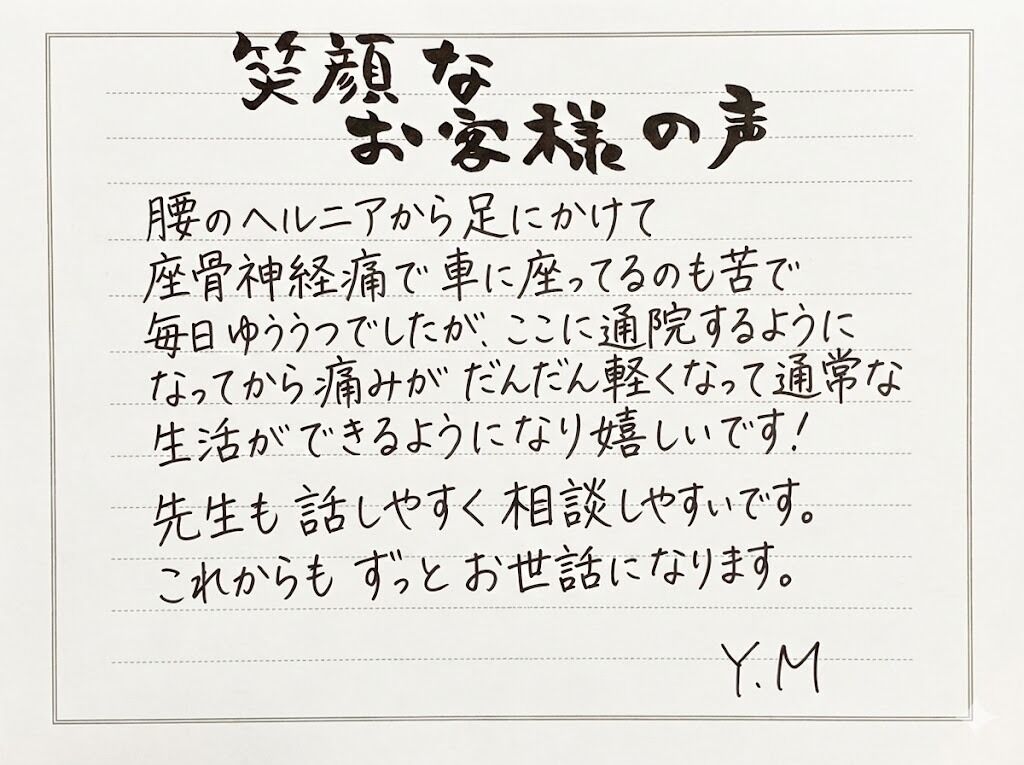 笑顔な
お客様の声
腰のヘルニアから足にかけて
座骨神経痛で車に座ってるのも苦で
毎日ゆううつでしたが、ここに通院するように
なってから痛みがだんだん軽くなって通常な
生活ができるようになり嬉しいです！
先生も話しやすく相談しやすいです。
これからもずっとお世話になります。
Y.M